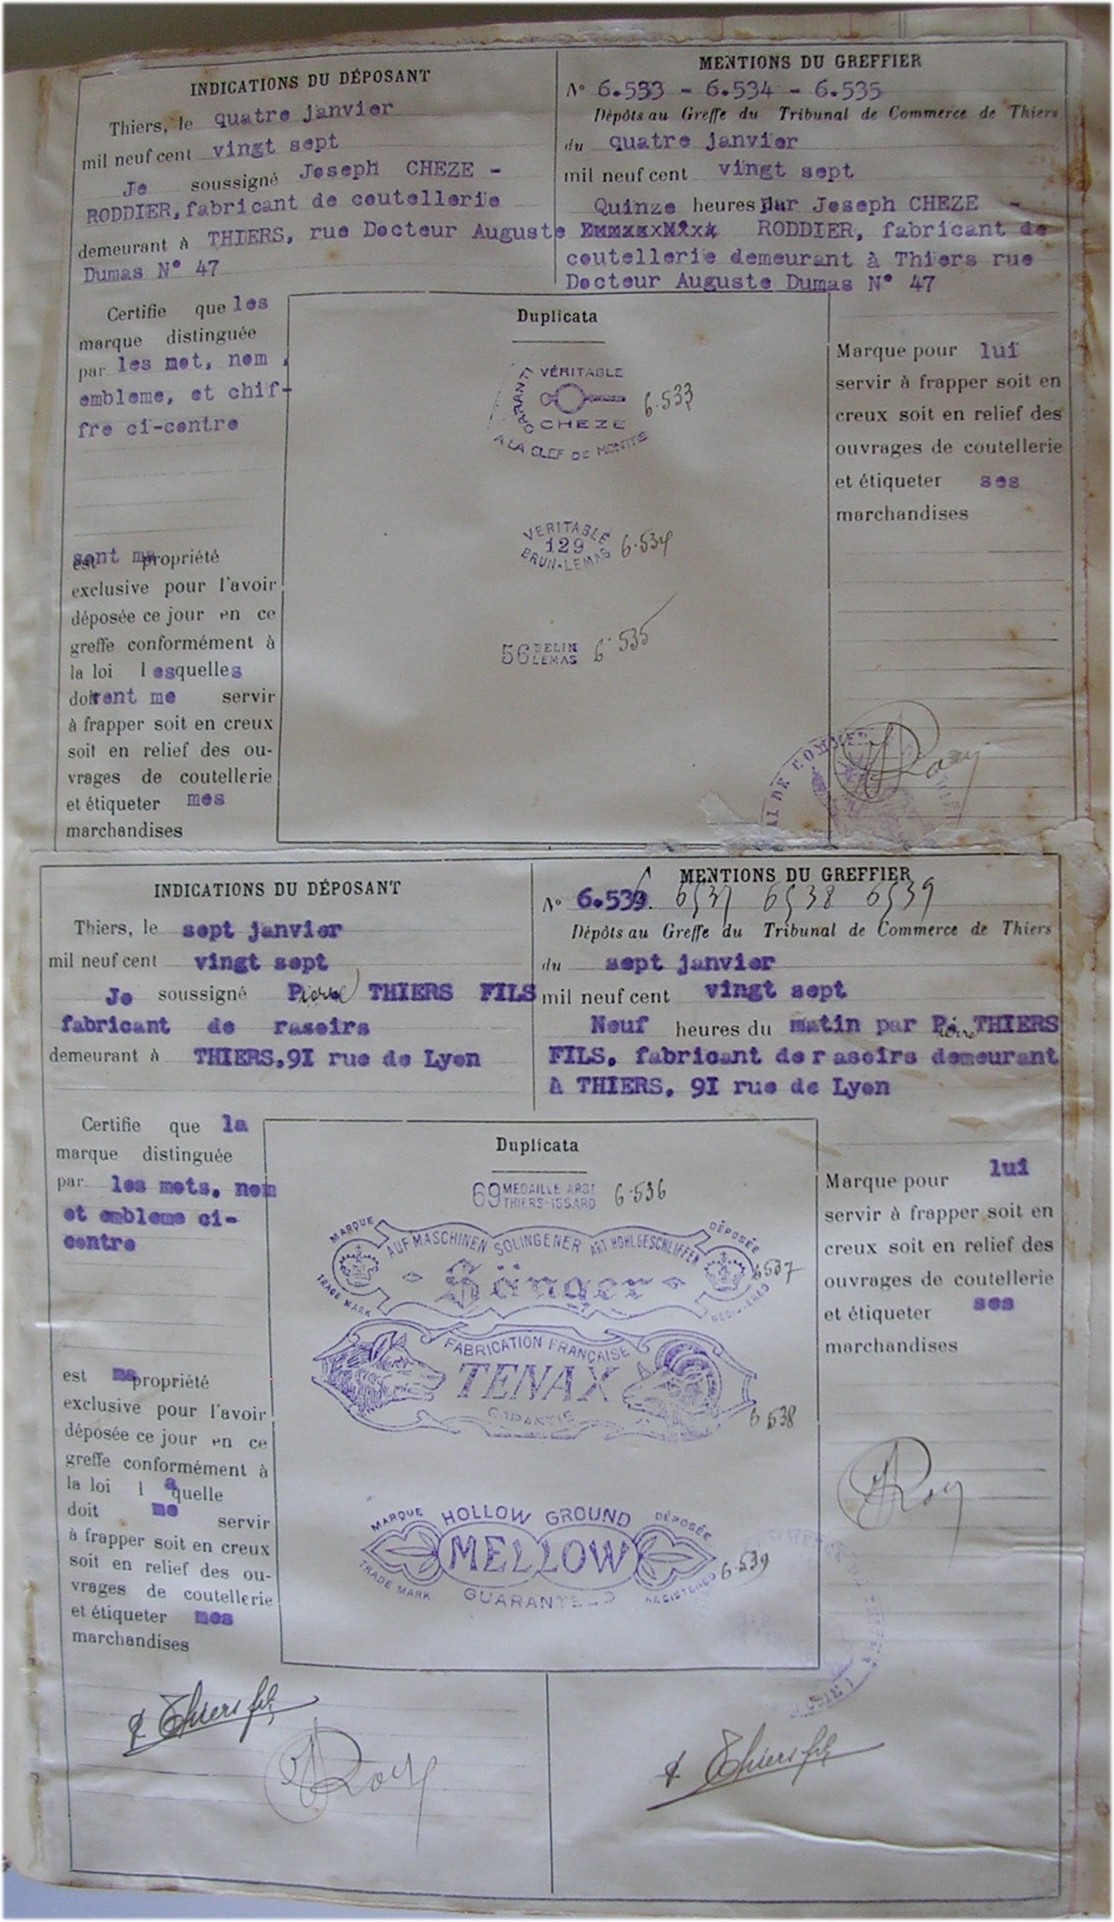 INDICATIONS DU DÉPOSANT
Thiers, le quatre janvier
mil neuf cent vingt sept
Je soussigné Joseph CHEZE -
RODDIER, fabricant de coutellerie
demeurant à THIERS, rue Docteur Auguste
Dumas N° 47
MENTIONS DU GREFFIER
N° 6.533 - 6.534 - 6.535
Dépôts au Greffe du Tribunal de Commerce de Thiers
du quatre janvier
mil neuf cent vingt sept
Quinze heures par Joseph CHEZE -
RODDIER, fabricant de
coutellerie demeurant à Thiers rue
Docteur Auguste Dumas N° 47
Certifie que les
marque distinguée
par les mot, nom,
embleme, et chif-
fre ci-contre
sont ma propriété
exclusive pour l'avoir
déposée ce jour en ce
greffe conformément à
la loi lesquelles
doivent me servir
à frapper soit en creux
soit en relief des ou-
vrages de coutellerie
et étiqueter mes
marchandises
Duplicata
GARANTI
VÉRITABLE
CHEZE
A LA CLEF DE MONTRE
6.533
VERITABLE
129
BRUN-LEMAS
6.534
56 BELIN
LEMAS
6.535
Marque pour lui
servir à frapper soit en
creux soit en relief des
ouvrages de coutellerie
et étiqueter ses
marchandises
INDICATIONS DU DÉPOSANT
Thiers, le sept janvier
mil neuf cent vingt sept
Je soussigné Pierre THIERS FILS
fabricant de rasoirs
demeurant à THIERS.9I rue de Lyon
MENTIONS DU GREFFIER
N° 6.536. 6537 6538 6539
Dépôts au Greffe du Tribunal de Commerce de Thiers
du sept janvier
mil neuf cent vingt sept
Neuf heures du matin par Pierre THIERS
FILS. fabricant de rasoirs demeurant
à THIERS. 9I rue de Lyon
Certifie que la
marque distinguée
par les mots, nom
et embleme ci-
contre
est ma propriété
exclusive pour l'avoir
déposée ce jour en ce
greffe conformément à
la loi laquelle
doit me servir
à frapper soit en creux
soit en relief des ou-
vrages de coutellerie
et étiqueter mes
marchandises
Duplicata
69 MEDAILLE ARGT
THIERS-ISSARD
6.536
MARQUE DÉPOSÉE
AUF MASCHINEN SOLINGENER ART HOHLGESCHLIFFEN
Sänger
TRADE MARK REGISTERED
6537
FABRICATION FRANÇAISE
TENAX
GARANTIE
6538
MARQUE HOLLOW GROUND DÉPOSÉE
MELLOW
TRADE MARK GUARANTEED REGISTERED
6.539
Marque pour lui
servir à frapper soit en
creux soit en relief des
ouvrages de coutellerie
et étiqueter ses
marchandises
P. Thiers fils
Roy
P. Thiers fils